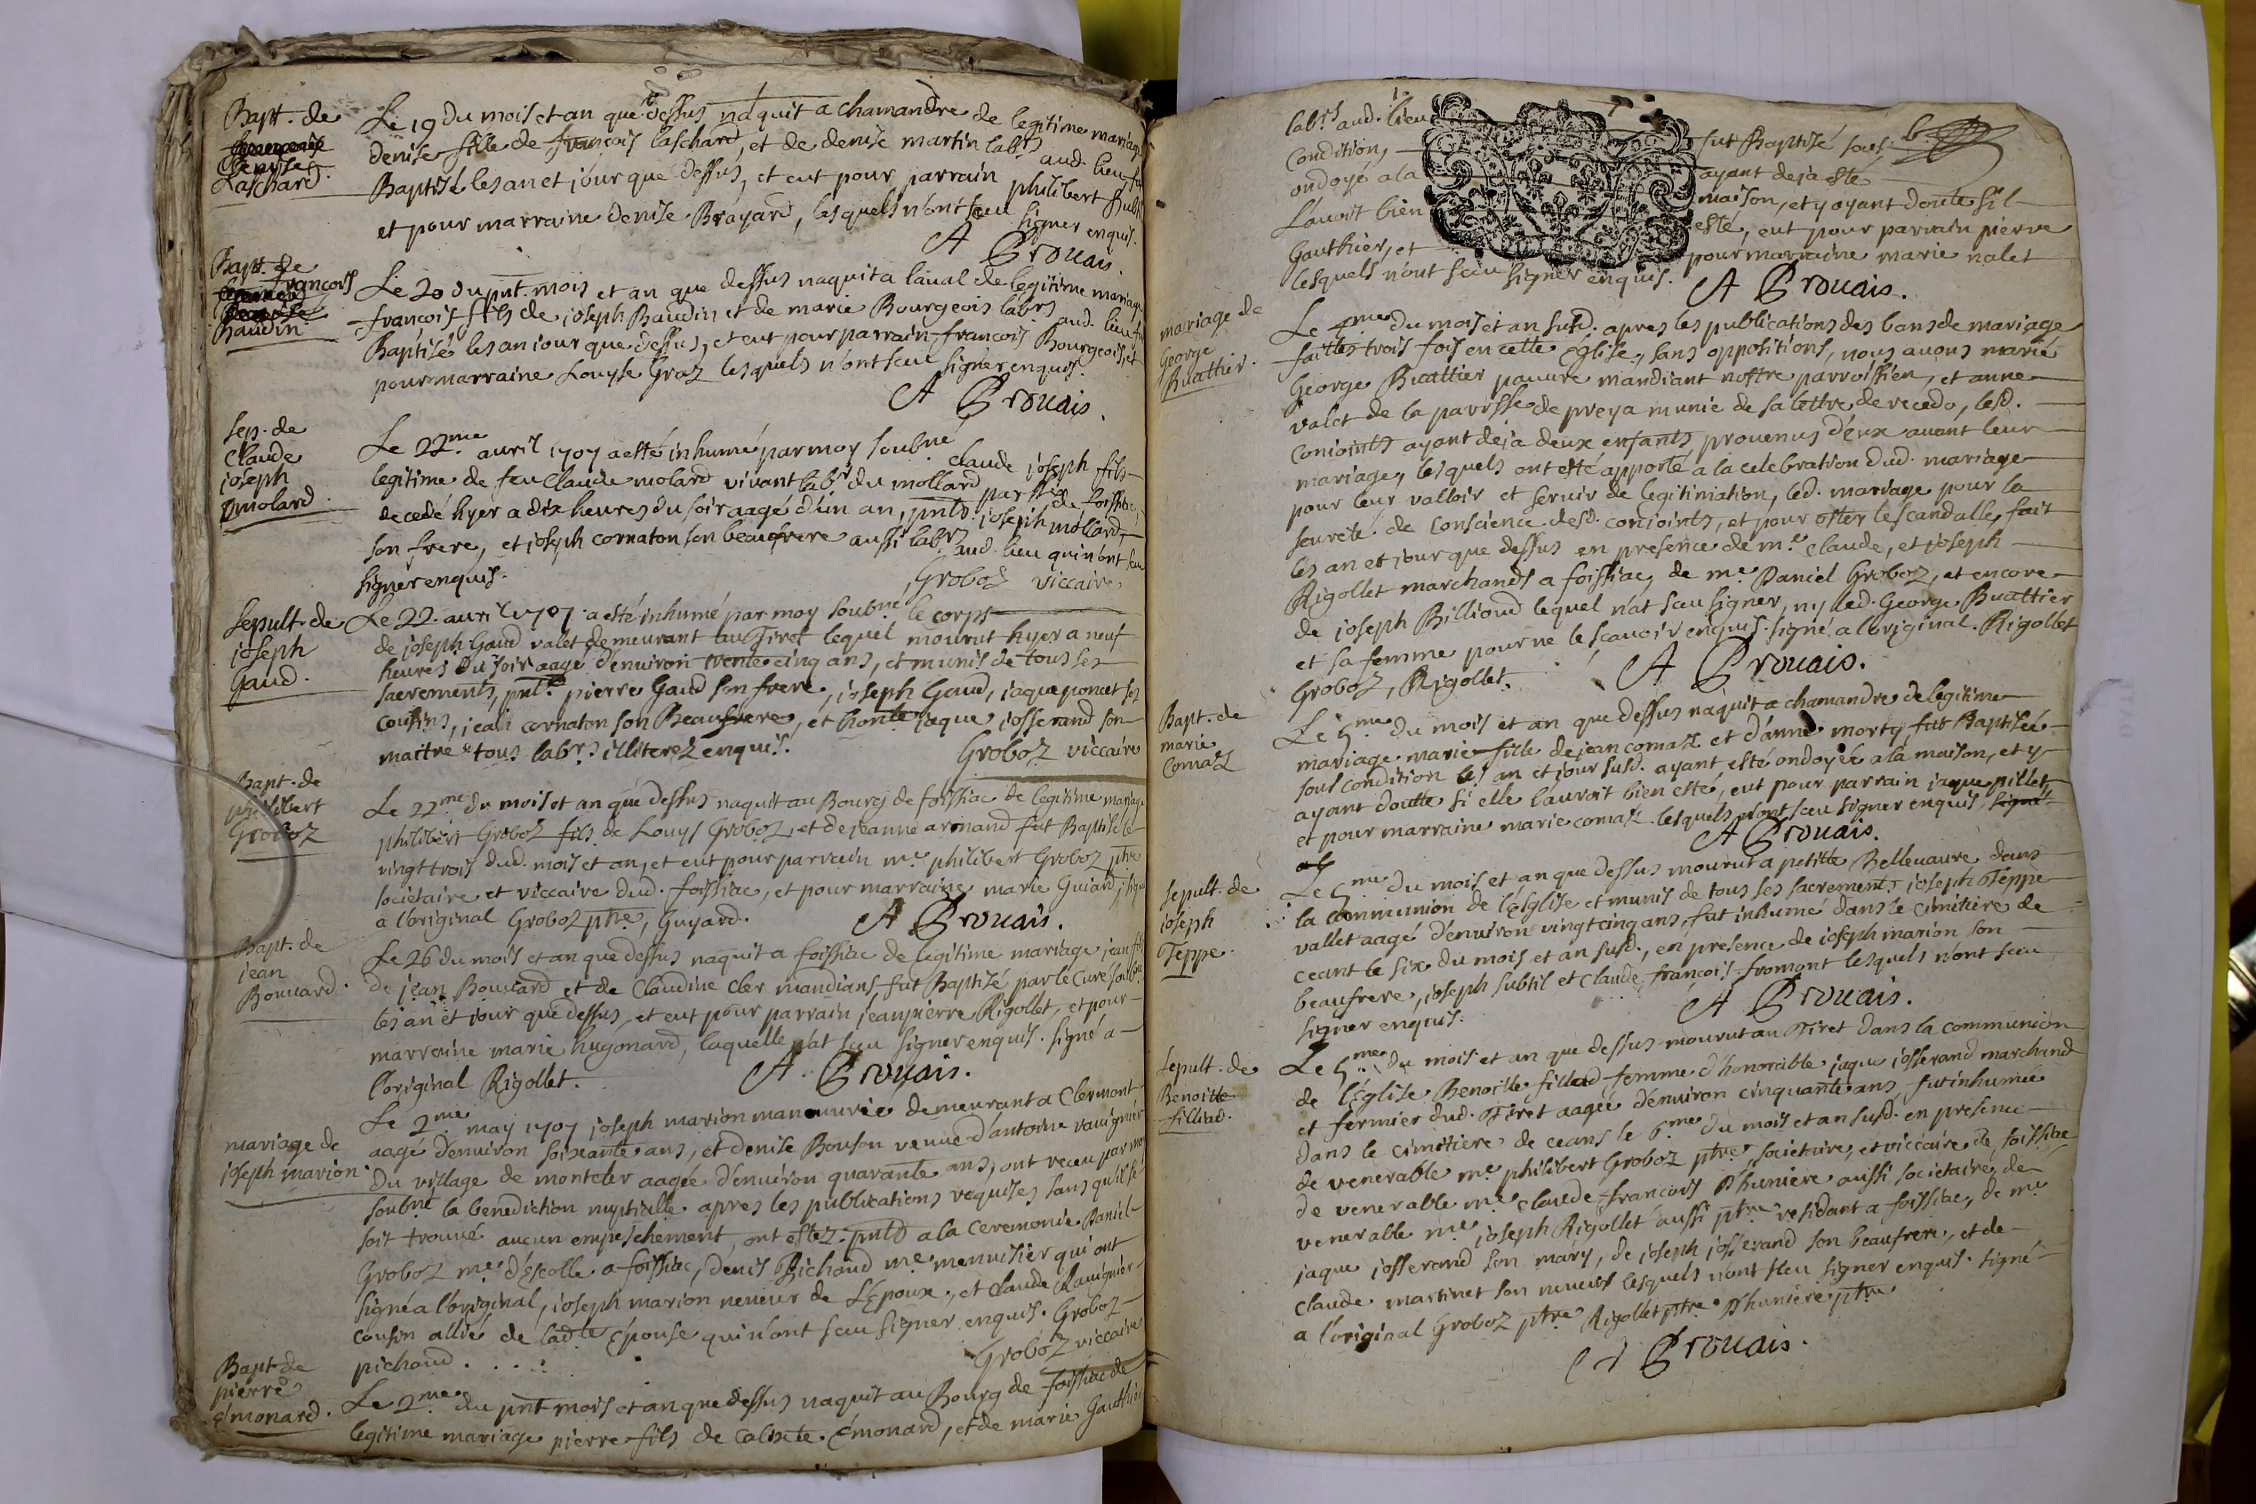 Bapt. de
Denise
Laschard.
Le 19 du mois et an que dessus naquit a chamandre de legitime mariage
denise fille de françois laschard, et de denise martin labrs aud. lieu fut
Baptisé les an et jour que dessus, et eut pour parrain philibert
et pour marraine denise Brayard, lasquels n'ont sceu signer enquis.
A Grouais.
Bapt. de
françois
Baudin
Le 20 du pnt. mois et an que dessus naquit a laual de legitime mariage
françois fils de joseph Baudin et de marie Bourgeois labrs aud. lieu fut
Baptisé les an jour que dessus, et eut pour parrain françois Bourgeois, et
pour marraine Louyse Graz lesquels n'ont sceu signer enquis.
A Grouais.
Sep. de
Claude
joseph
molard.
Le 22.me auril 1707 a esté inhumé par moy soubne Claude joseph fils
legitime de feu Claude molard viuant labr du mollard parsse de foissiac,
decedé hyer a dix heures du soir aagé d'un an, pnts. joseph mollard
son frere, et joseph cornaton son beaufrere aussi labrs aud. lieu qui n'ont sceu
signer enquis.
Groboz viccaire
Sepult. de
joseph
Gaud.
Le 22. auril 1707 a esté inhumé par moy soubné le corps
de joseph Gaud valet demeurant au Tiret lequel mourut hyer a neuf
heures du soir aagé d'enuiron trente cinq ans, et munis de tous ses
sacrements, pnts. pierre Gaud son frere, joseph Gaud, jaque poncet ses
cousins, jean cornaton son Beaufrere, et honte jaque josserand son
maitre tous labrs illiterez enquis.
Groboz viccaire
Bapt. de
philibert
Groboz
Le 22me du mois et an que dessus naquit au Bourg de foissiac de legitime mariage
philibert Groboz fils de Louys Groboz, et de jeanne armand fut Baptisé le
vingt trois dud. mois et an, et eut pour parrain me philibert Groboz ptre
societaire et viccaire dud. foissiac, et pour marraine marie Guiard, signé
a l'original Groboz ptre, Guyard.
A Grouais.
Bapt. de
jean
Bouuard.
Le 26 du mois et an que dessus naquit a foissiac de legitime mariage jean fils
de jean Bouuard et de Claudine Cler mandians, fut Baptisé par le Curé soubne
les an et jour que dessus, et eut pour parrain jeanpierre Rigollet, et pour
marraine marie hugonard, laquelle n'at sceu signer enquis. signé a
l'original Rigollet.
A Grouais.
mariage de
joseph marion.
Le 2.me may 1707 joseph marion manouurie demeurant a Clermont
aagé d'enuiron soixante ans, et denise Bonson veuue d'antoine
du village de montcler aagée d'enuiron quarante ans, ont receu par moy
soubne la benediction nuptialle apres les publications requises sans qu'il se
soit trouué aucun empeschement, ont estez pnts a la ceremonie Daniel
Groboz me d'escolle a foissiac, denis Pichaud me menuisier qui ont
signé a l'original, joseph marion neueur de l'Epoux, et Claude
cousin allié de ladte Epouse qui n'ont sceu signer enquis. Groboz
pichaud.
Groboz viccaire
Bapt. de
pierre
Emonard.
Le 2.me du pnt mois et an que dessus naquit au Bourg de foissiac de
legitime mariage pierre fils de Calixte Emonard, et de marie Gauthier
labrs aud. lieu fut Baptisé sous
Condition, ayant deja esté
ondoyé a la maison, et y ayant doute s'il
l'auoit bien esté, eut pour parrain pierre
Gauthier, et pour marraine marie nalet
lesquels n'ont sceu signer enquis.
A Grouais.
mariage de
George
Buattier.
Le 4me du mois et an susd. apres les publications des bans de mariage
faittes trois fois en cette Eglise, sans oppositions, nous auons marié
George Buattier pauure mandiant nostre parroissien, et anne
valet de la parsse de preya munie de sa lettre de recedo, lesd.
conioints ayant deja deux enfants prouenus d'eux auant leur
mariage, lesquels ont esté apporté a la celebration dud. mariage
pour leur valloir et seruir de legitimation, led. mariage pour la
seureté de Conscience desd. conioints, et pour oster le scandalle, fait
les an et jour que dessus en presence de me Claude, et joseph
Rigollet marchands a foissiac, de me Daniel Groboz, et encore
de joseph Billioud lequel n'at sceu signer, ny led. George Buattier
et sa femme pour ne le scauoir enquis. signé a l'original. Rigollet
Groboz, Rigollet.
A Grouais.
Bapt. de
marie
Comaz
Le 5.me du mois et an que dessus naquit a chamandre de legitime
mariage marie fille de jean comaz et d'anne morty, fut Baptisée
sous condition les an et jour susd. ayant esté ondoyée a la maison, et y
ayant doutte si elle l'auoit bien esté, eut pour parrain jaque pillet
et pour marraine marie comaz lesquels n'ont sceu signer enquis.
A Grouais.
Sepult. de
joseph
Teppe.
Le 5me du mois et an que dessus mourut a petitte Belleuaure dans
la communion de l'Eglise et munis de tous ses sacrements joseph Teppe
vallet aagé d'enuiron vingt cinq ans, fut inhumé dans le cimitiere de
ceant le six du mois et an susd., en presence de joseph marion son
beaufrere, joseph subtil et Claude françois fromont lesquels n'ont sceu
signer enquis.
A Grouais.
Sepult. de
Benoitte
filliad.
Le 5.me du mois et an que dessus mourut au Tiret dans la communion
de l'Eglise Benoitte filliad femme d'honorable jaque josserand marchand
et fermier dud. Tiret aagée d'enuiron cinquante ans, fut inhumée
dans le cimitiere de ceans le 6.me du mois et an susd. en presence
de venerable me philibert Groboz ptre, societaire, et viccaire de foissiac
de venerable me claude francois Dhuniere aussi societaire, de
venerable me joseph Rigollet aussi ptre residant a foissiac, de me
jaque josserand son mary, de joseph josserand son beaufrere, et de
Claude martinet son neueur lesquels n'ont sceu signer enquis. signé
a l'original Groboz ptre Rigollet ptre Dhuniere ptre
A Grouais.